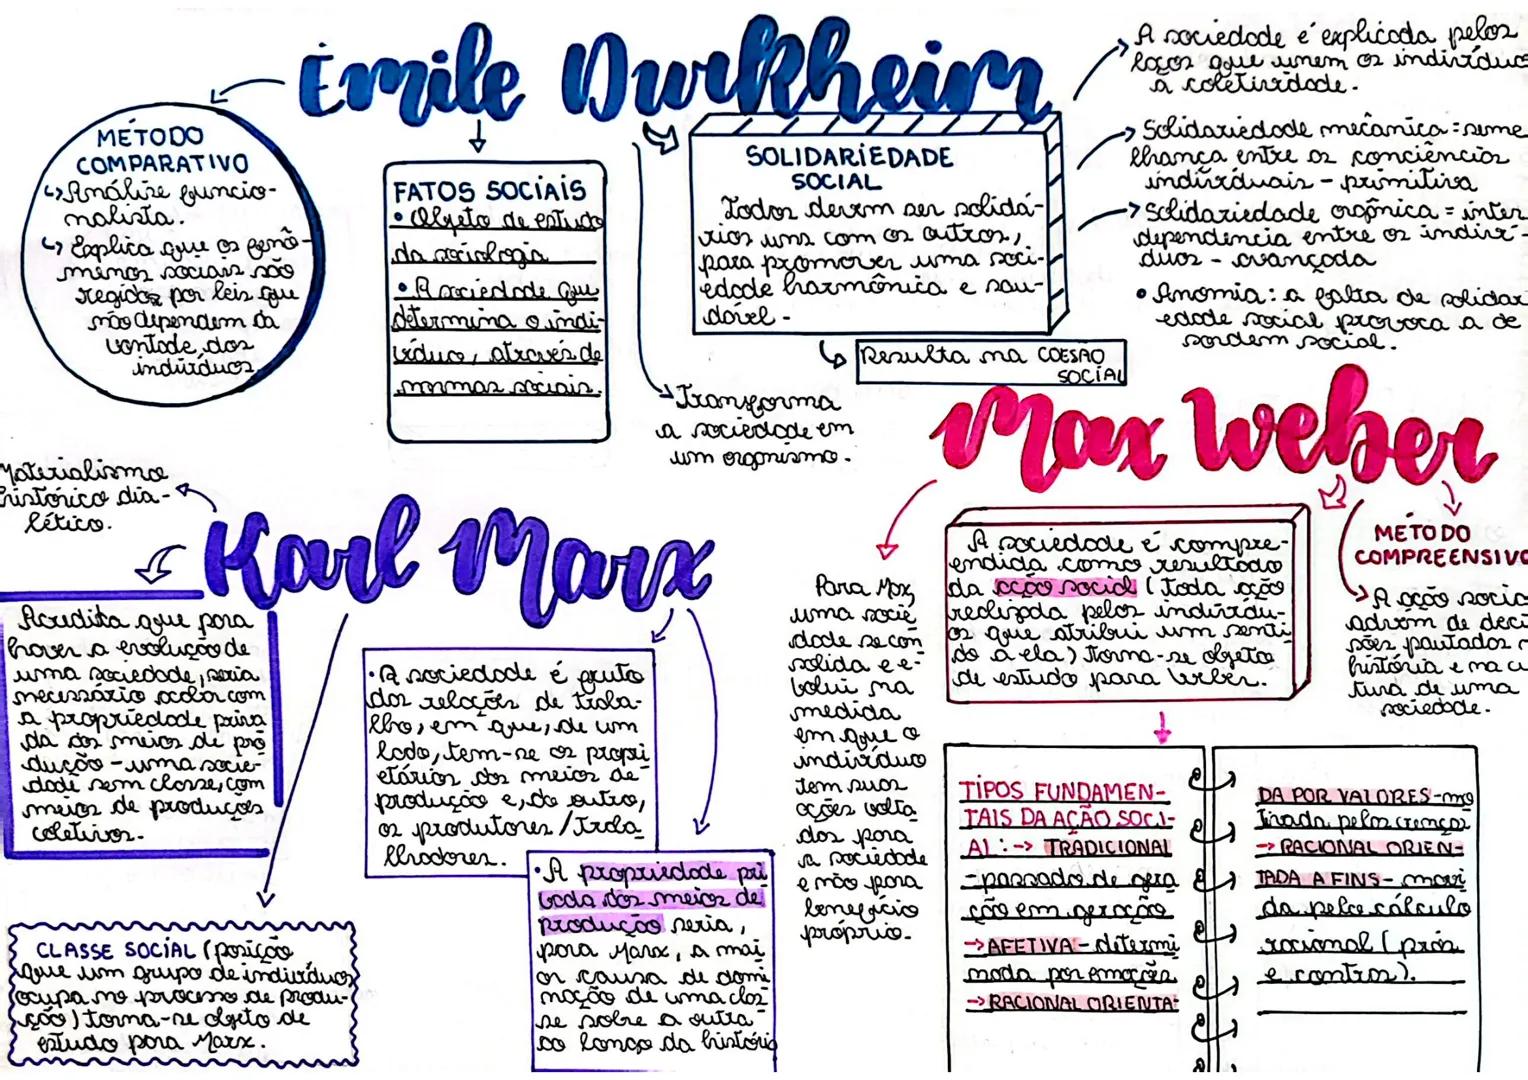 Émile Durkheim
MÉTODO
COMPARATIVO
↳ Análise funcio-
nalista.
↳ Explica que os fenô-
menos sociais são
regidos por leis que
não dependem da
vontade dos
indivíduos
FATOS SOCIAIS
• Objeto de estudo
da sociologia
• A sociedade que
determina o indi-
víduo, através de
normas sociais.
SOLIDARIEDADE
SOCIAL
Todos devem ser solidá-
rios uns com os outros,
para promover uma soci-
edade harmônica e sau-
dável.
↳ Resulta na COESÃO
SOCIAL
→ Transforma
a sociedade em
um organismo.
→ A sociedade é explicada pelos
laços que unem os indivíduos
a coletividade.
→ Solidariedade mecânica = seme
lhança entre as conciências
individuais - primitiva
→ Solidariedade orgânica = inter
dependência entre os indiví-
duos - avançada
• Anomia: a falta de solidar
edade social provoca a de
sordem social.
Max Weber
Para Max,
uma socie
dade se con
solida e e-
volui na
medida
em que o
indivíduo
tem suas
ações volta
das para
a sociedade
e não para
benefício
próprio.
A sociedade é compre-
endida como resultado
da ação social (toda ação
realizada pelos indivídu-
os que atribui um senti
do a ela) torna-se objeto
de estudo para Weber.
MÉTODO
COMPREENSIVO
→ A ação socia
advém de deci
sões pautadas n
história e na cu
tura de uma
sociedade.
TIPOS FUNDAMEN-
TAIS DA AÇÃO SOCI-
AL: → TRADICIONAL
- passado de gera
ção em geração
→ AFETIVA - determi
nada por emoções
→ RACIONAL ORIENTA-
DA POR VALORES - mo
tivada pelas crenças
→ RACIONAL ORIEN-
TADA A FINS - movi
da pelo cálculo
racional (prós
e contras).
Karl Marx
Materialismo
histórico dia-
lético.
Acredita que para
haver a evolução de
uma sociedade, seria
necessário acabar com
a propriedade priva
da dos meios de pro
dução - uma socie-
dade sem classe, com
meios de produções
coletivos.
• A sociedade é fruto
das relações de traba-
lho, em que, de um
lado, tem-se os propri
etários dos meios de
produção e, do outro,
os produtores / traba
lhadores.
• A propriedade pri
vada dos meios de
produção seria,
para Marx, a mai
or causa de domi
nação de uma clas
se sobre a outra
ao longo da história
CLASSE SOCIAL (posição
que um grupo de indivíduos
ocupa no processo de produ-
ção) torna-se objeto de
estudo para Marx.